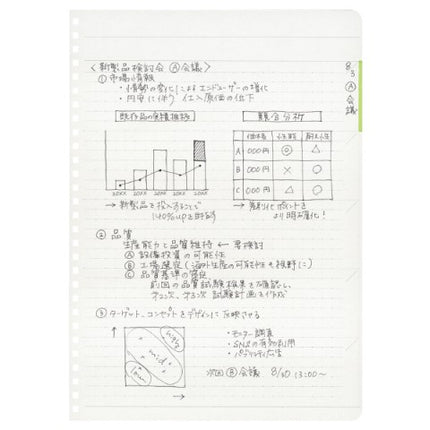 8/3 Ⓐ会議
<新製品検討会 Ⓐ会議>
① 市場情報
・情勢の変化によるエンドユーザーの増化
・円安に伴う 仕入原価の低下
既存品の実績推移
競合分析
価格 性能 耐久性
A 000円 ◎ △
B 000円 × ○
C 000円 △ ○
20XX 20XX 20XX 20XX 20XX
→ 新製品を投入することで
140%upを目指す
→ 差別化ポイントを
より明確化!
② 品質
生産能力と品質維持 ← 要検討
Ⓐ 設備投資の可能性
Ⓑ 工場選定(海外生産の可能性も視野に)
Ⓒ 品質基準の策定
前回の品質試験結果を確認し、
第2次、第3次 試験計画を作成
③ ターゲット、コンセプトをデザインに反映させる
high
mid
low
・モニター調査
・SNSの有効利用
・パブリシティ広告
次回 Ⓑ会議 8/20 13:00〜